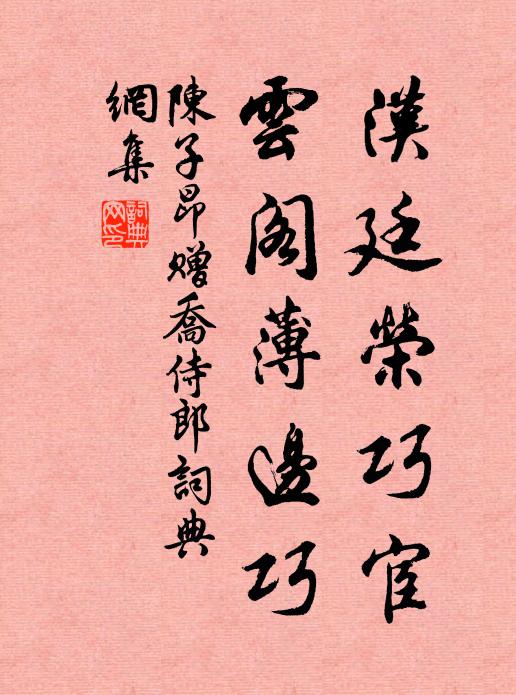 漢廷榮巧宦
雲閣薄邊巧
陳子昂赠喬侍郎詞典
網集
詞典網印